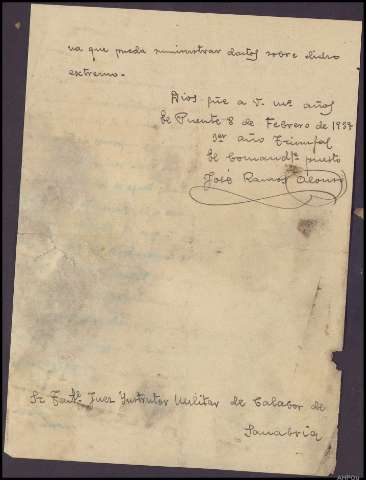 na que pueda suministrar datos sobre dicho
extremo.-
Dios gûe a V. ms años
El Puente 8 de Febrero de 1937
1er año Triunfal
El Comandte puesto
José Ramos Alonso
Sr Juez Instrutor Militar de Calabor de
Sanabria
AHPOu